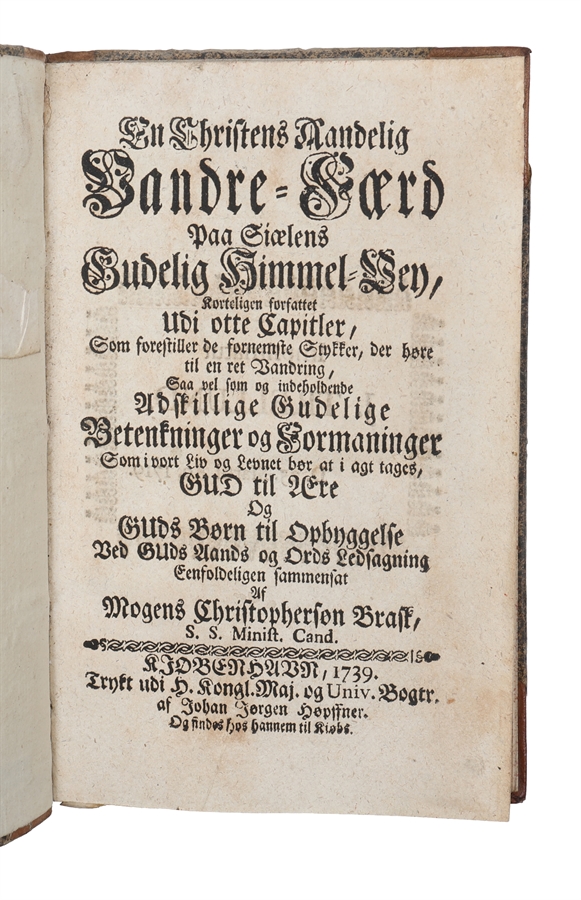 En Christens Aandelig
Vandre-Færd
Paa Siælens
Gudelig Himmel-Vey,
Korteligen forfattet
Udi otte Capitler,
Som forestiller de fornemste Stykker, der høre
til en ret Vandring,
Saa vel som og indeholdende
Adskillige Gudelige
Betenkninger og Formaninger
Som i vort Liv og Levnet bør at i agt tages,
GUD til Ære
Og
GUds Børn til Opbyggelse
Ved GUds Aands og Ords Ledsagning
Eenfoldeligen sammensat
Af
Mogens Christophersøn Brask,
S. S. Minist. Cand.
KIØBENHAVN, 1739.
Trykt udi H. Kongl. Maj. og Univ. Bogtr.
af Johan Jørgen Høpffner.
Og findes hos hannem til Kiøbs.